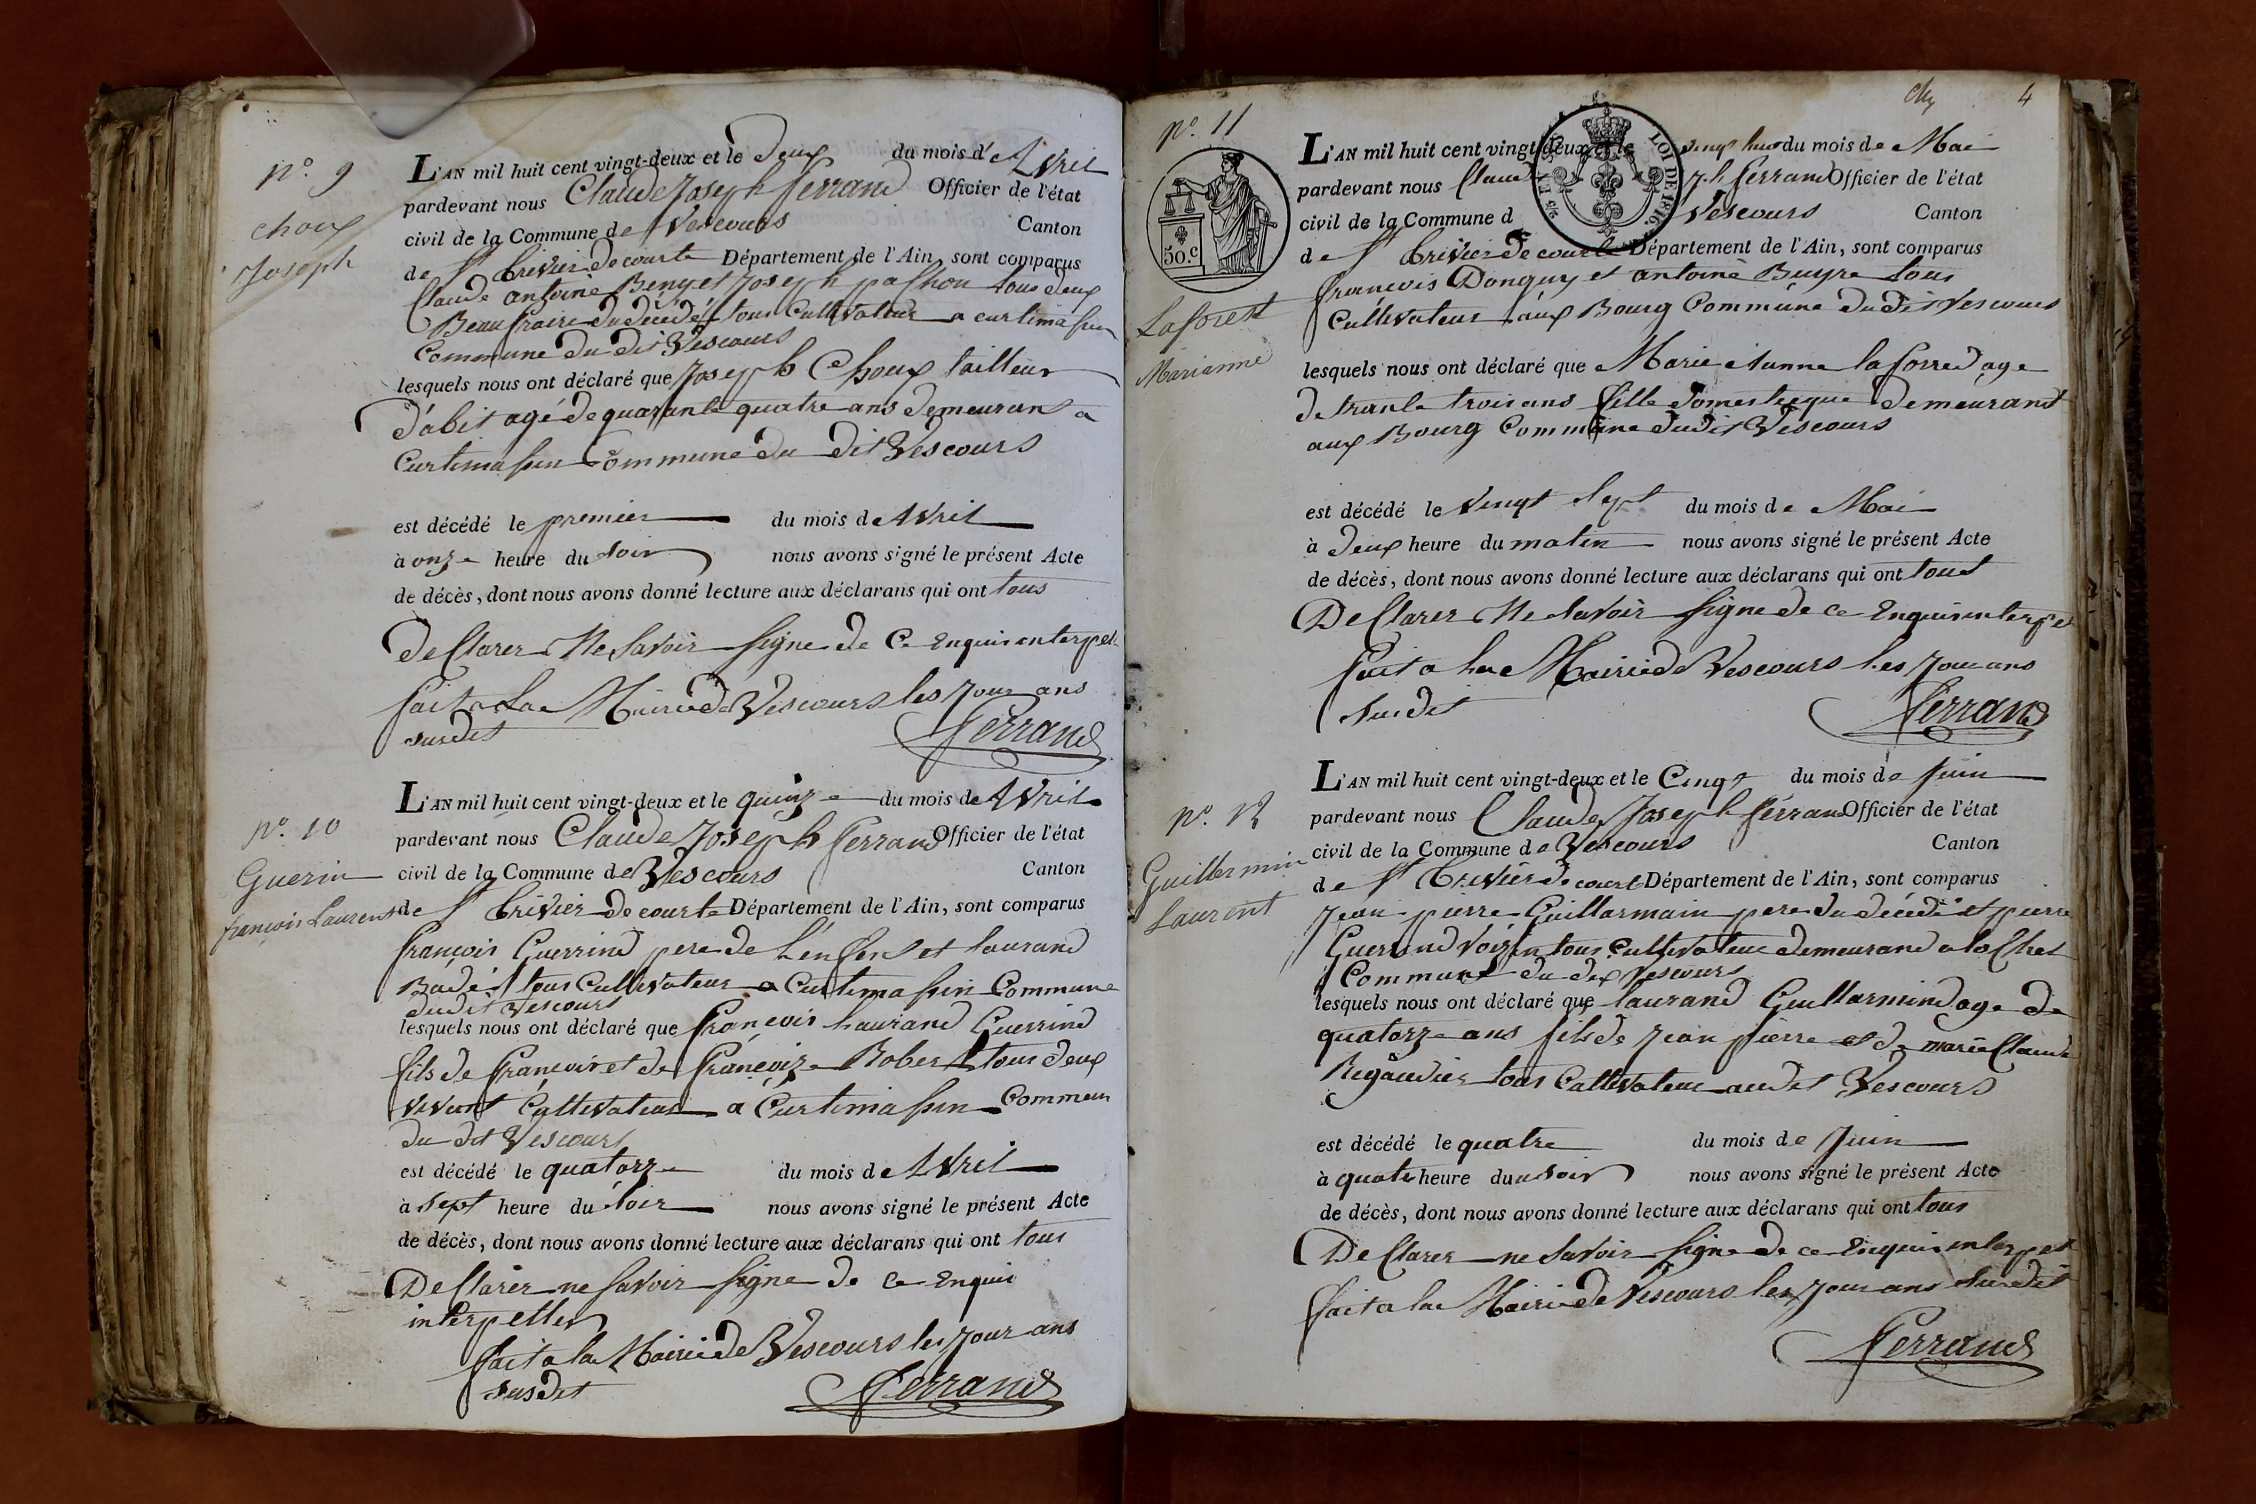 nº. 9
choux
Joseph
L'AN mil huit cent vingt-deux et le deux du mois d'Avril
pardevant nous Claude Joseph ferrand Officier de l'état
civil de la Commune de Vescours Canton
de St trivier de courte Département de l'Ain, sont comparus
Claude antoine Beny et Joseph pachou tous deux
Beau fraire du décédé tous Cultivateur a curtimassin
Commune du dit Vescours
lesquels nous ont déclaré que Joseph Choux tailleur
d'abit agé de quarante quatre ans demeurant a
Curtimassin Commune du dit Vescours
est décédé le premier du mois de Avril
à onze heure du soir nous avons signé le présent Acte
de décès, dont nous avons donné lecture aux déclarans qui ont tous
De Clarer Ne Savoir signe de Ce Enquis interpel
fait a La Mairie de Vescours les Jour ans
susdit
ferrand
nº. 10
Guerin
françois Laurent
L'AN mil huit cent vingt-deux et le quinze du mois de Avril
pardevant nous Claude Joseph ferrand Officier de l'état
civil de la Commune de Vescours Canton
de St trivier de courte Département de l'Ain, sont comparus
françois Guerrind pere de L'enfent et laurand
Badé tous Cultivateur a Curtimassin Commune
dudit Vescours
lesquels nous ont déclaré que françois laurand Guerrind
fils de françois et de françoize Robert tous deux
vivant Cultivateur a Curtimassin Commun
du dit Vescours
est décédé le quatorze du mois de Avril
à sept heure du soir nous avons signé le présent Acte
de décès, dont nous avons donné lecture aux déclarans qui ont tous
De Clarer ne savoir signe de ce Enquis
interpeller
fait a la Mairie de Vescours les Jour ans
susdit
ferrand
4
nº. 11
50.c
LOI DE 1816
Laforest
Marianne
L'AN mil huit cent vingt-deux et le vingt huit du mois de Mai
pardevant nous Claude Jh ferrand Officier de l'état
civil de la Commune d Vescours Canton
de St trivier de courte Département de l'Ain, sont comparus
francois Donguy et antoine Buyre tous
Cultivateur aux Bourg Commune du dit Vescours
lesquels nous ont déclaré que Marie anne laforred age
de trante trois ans fille domestique demeurant
aux Bourg Commune dudit Vescours
est décédé le vingt sept du mois de Mai
à deux heure du matin nous avons signé le présent Acte
de décès, dont nous avons donné lecture aux déclarans qui ont tous
De Clarer Ne Savoir signe de ce Enquis interpel
fait a la Mairie de Vescours les Jour ans
susdit
ferrand
nº. 12
Guillermin
Laurent
L'AN mil huit cent vingt-deux et le Cinqt du mois de Juin
pardevant nous Claude Joseph ferrand Officier de l'état
civil de la Commune de Vescours Canton
de St trivier de courte Département de l'Ain, sont comparus
Jean pierre Guillarmain pere du décédé et pierre
Guerrand Voizin tous Cultivateur demeurand a la
Commune du dit Vescours
lesquels nous ont déclaré que laurand Guillarmind age de
quatorze ans fils de Jean pierre et de marie Claude
Regaudier tous Cultivateur audit Vescours
est décédé le quatre du mois de Juin
à quatre heure du soir nous avons signé le présent Acte
de décès, dont nous avons donné lecture aux déclarans qui ont tous
De Clarer ne Savoir signe de ce Enquis interpel
fait a la Mairie de Vescours les Jour ans susdit
ferrand